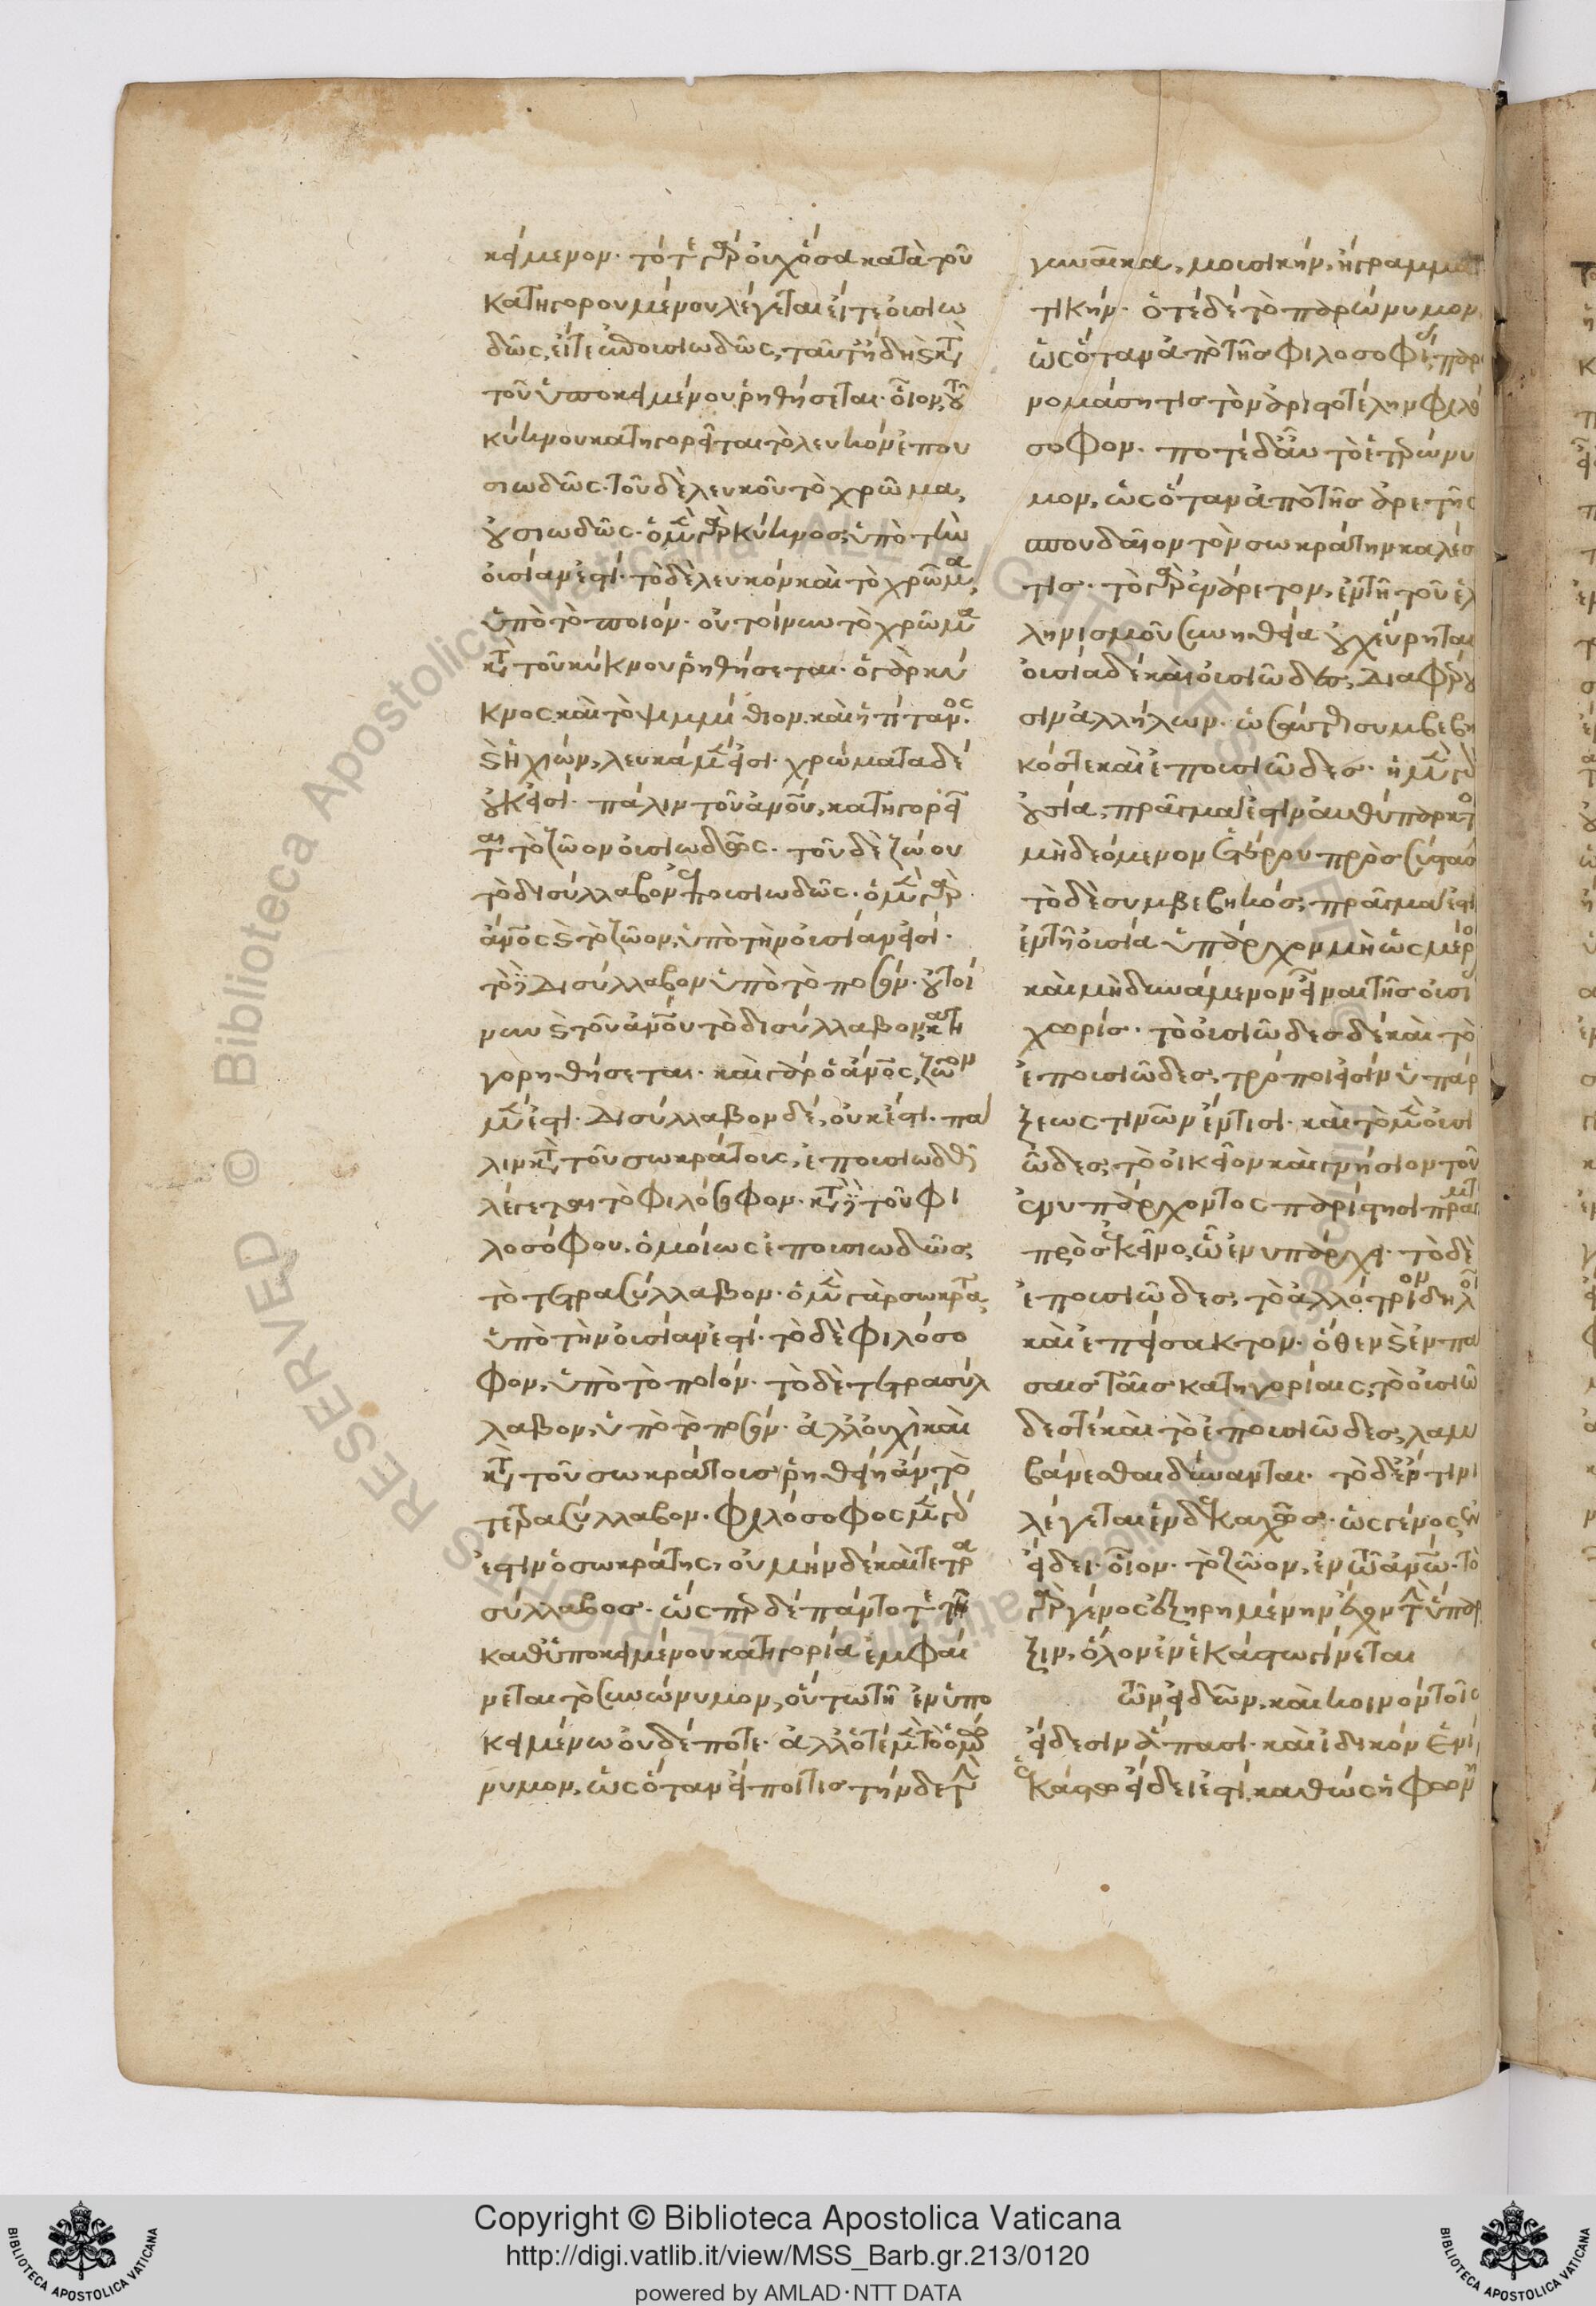 κείμενον. τότε γὰρ οὐχ ὅσα κατὰ τοῦ
κατηγορουμένου λέγεται εἴτε οὐσιω
δῶς, εἴτε ἐποισιωδῶς, ταῦτ' ἤδη κ κτ
τοῦ ὑποκειμένου ῥηθήσεται. οἷον, τοῦ
κύκνου κατηγορεῖται τὸ λευκὸν ἐπου
σιωδῶς. τοῦ δὲ λευκοῦ τὸ χρῶμα,
οὐσιωδῶς. ὁ μὲν γὰρ κύκνος, ὑπὸ τὴν
οὐσίαν ἐστί. τὸ δὲ λευκὸν καὶ τὸ χρῶμα,
ὑπὸ τὸ ποιόν. οὐ τοίνυν τὸ χρῶμα
κτ τοῦ κύκνου ῥηθήσεται. ὁ γὰρ κύ
κνος καὶ τὸ ψιμμίθιον. καὶ ἡ τίτανος.
κ ἡ χιών, λευκὰ μέν εἰσι. χρώματα δέ
οὐκ εἰσί. πάλιν τοῦ ἀνοῦ, κατηγορεῖ
ται τὸ ζῶον οὐσιωδῶς. τοῦ δὲ ζώου
τὸ δισύλλαβον ἐποισιωδῶς. ὁ μὲν γὰρ
ἄνος κ τὸ ζῶον, ὑπὸ τὴν οὐσίαν εἰσί.
τὸ δὲ δισύλλαβον ὑπὸ τὸ ποσόν. οὐ τοί
νυν κ τοῦ ἀνοῦ τὸ δισύλλαβον κατη
γορηθήσεται. καὶ γὰρ ὁ ἄνος, ζῶον
μέν ἐστι. δισύλλαβον δέ, οὐκ ἐστι. πα
λιν κτ τοῦ σωκράτους, ἐποισιωδῶς
λέγεται τὸ φιλόσοφον. κτ δὲ τοῦ φι
λοσόφου. ὁμοίως ἐποισιωδῶς
τὸ τετρασύλλαβον. ὁ μὲν γὰρ σωκράτης
ὑπὸ τὴν οὐσίαν ἐστί. τὸ δὲ φιλόσο
φον, ὑπὸ τὸ ποιόν. τὸ δὲ τετρασύλ
λαβον, ὑπὸ τὸ ποσόν. ἀλλ' οὐχὶ καὶ
κτ τοῦ σωκράτους ῥηθείη ἂν τὸ
τετρασύλλαβον. φιλόσοφος μὲν γάρ
ἐστιν ὁ σωκράτης, οὐ μὴν δὲ καὶ τετρα
σύλλαβος. ὥσπερ δὲ πάντοτε τῇ
καθ' ὑποκειμένου κατηγορία ἐμφαί
νεται τὸ συνώνυμον, οὕτω τῇ ἐν ὑπο
κειμένω οὐδέποτε. ἀλλ' ὁτὲ μὲν τὸ ὁμώ
νυμον, ὡς ὅταν εἴποι τις τήνδε τὴν
γυναῖκα, μουσικήν, ἢ γραμμα
τικήν. ὁτὲ δὲ τὸ παρώνυμον,
ὡς ὅταν ἀπὸ τῆς φιλοσοφίας, παρ
νομάση τις τὸν ἀριστοτέλην φιλό
σοφον. ποτὲ δ' αὖ τὸ ἑτερώνυ
μον, ὡς ὅταν ἀπὸ τῆς ἀρετῆς
σπουδαῖον τὸν σωκράτην καλέσ
τις. τὸ γὰρ ἐνάρετον, ἐν τῇ τοῦ ἑλ
ληνισμοῦ συνηθεία οὐχ εὕρηται
οὐσία δὲ καὶ οὐσιῶδες, διαφέρου
σιν ἀλλήλων. ὡσαύτως συμβεβη
κός τε καὶ ἐποισιῶδες. ἡ μὲν γάρ
οὐσία, πρᾶγμα ἐστὶν αὐθύπαρκτον
μὴ δεόμενον ἑτέρου πρὸς σύστασ
τὸ δὲ συμβεβηκός, πρᾶγμα ἐστ
ἐν τῇ οὐσία ὑπάρχον μὴ ὡς μέρος
καὶ μὴ δυνάμενον εἶναι τῆς οὐσί
χωρίς. τὸ οὐσιῶδες δὲ καὶ τὸ
ἐποισιῶδες, τρόποι εἰσὶν ὑπάρ
ξεως τινῶν ἔν τισι. καὶ τὸ μὲν οὐσι
ῶδες, τὸ οἰκεῖον καὶ γνήσιον τοῦ
ἐνυπάρχοντος παρίστησι πράγματ
πρὸς ἐκεῖνο, ὧ ἐνυπάρχει. τὸ δὲ
ἐποισιῶδες, τὸ ἀλλότριον δηλοῖ
καὶ ἐπείσακτον. ὅθεν κ ἐν πά
σαις ταῖς κατηγορίαις, τὸ οὐσιῶ
δες τε καὶ τὸ ἐποισιῶδες, λαμ
βάνεσθαι δύναται. τὸ δὲ ἔν τινι
λέγεται ἑνδεκαχῶς. ὡς γένος ἐν
εἴδει. οἷον. τὸ ζῶον, ἐν τῶ ἀνω. τὸ
γὰρ γένος ἐξηρημένην ἔχον τὴν ὕπαρ
ξιν, ὅλον ἐν ἑκάστω γίνεται
τῶν εἰδῶν, καὶ κοινὸν τοῖς
εἴδεσίν ἐστι πᾶσι. καὶ ἰδικὸν ἐν
ἑκάστω εἴδει ἐστί, καθὼς ἡ φωνὴ
Copyright © Biblioteca Apostolica Vaticana
http://digi.vatlib.it/view/MSS_Barb.gr.213/0120
powered by AMLAD·NTT DATA